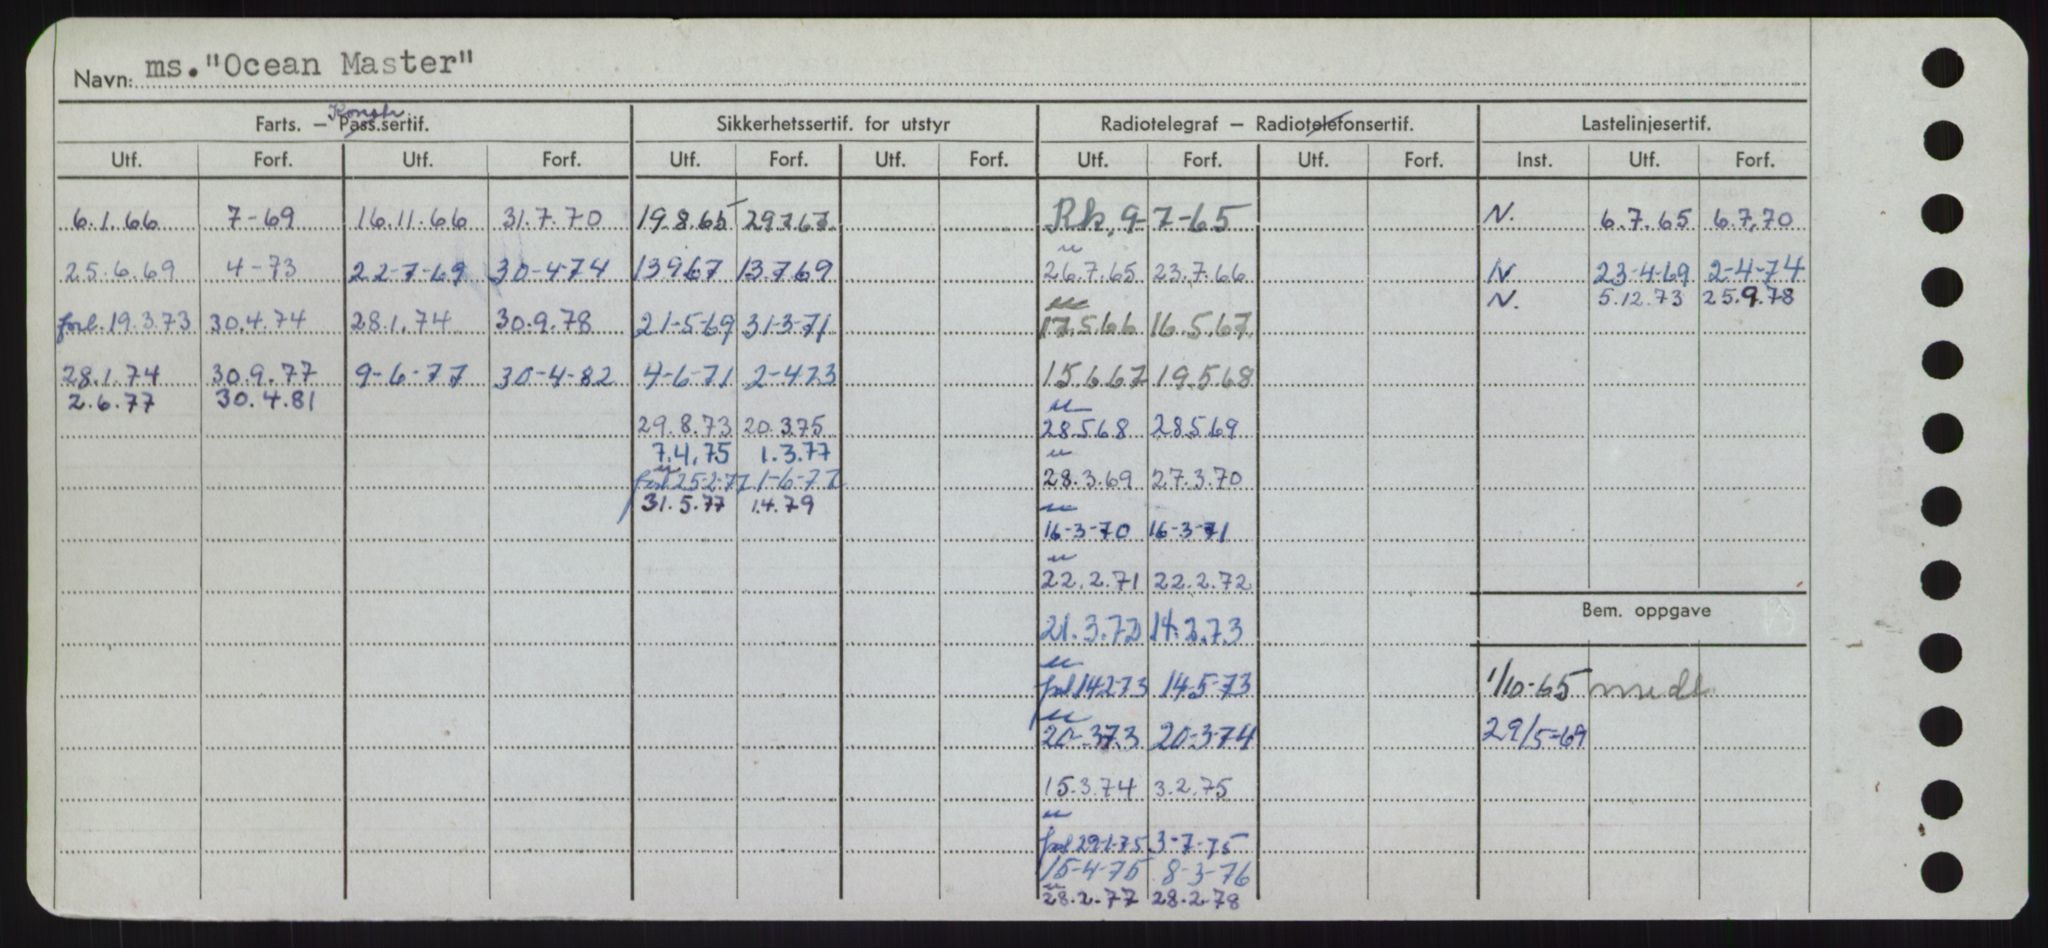 Navn: ms. "Ocean Master"
Farts. — Pass.sertif. Konstr Sikkerhetssertif. for utstyr Radiotelegraf — Radiotelefonsertif. Lastelinjesertif.
Utf. Forf. Utf. Forf. Utf. Forf. Utf. Forf. Utf. Forf. Utf. Forf. Inst. Utf. Forf.
6.1.66 7-69 16.11.66 31.7.70 19.8.65 29.7.67 Rk. 9-7-65 N. 6.7.65 6.7.70
25.6.69 4-73 22-7-69 30-4-74 13967 13.7.69 26.7.65 23.7.66 N 23-4-69 2-4-74
N. 5.12.73 25.9.78
forl. 19.3.73 30.4.74 28.1.74 30.9.78 21-5-69 31-3-71 17.5.66 16.5.67
28.1.74 30.9.77 9-6-77 30-4-82 4-6-71 2-4-73 15.6.67 19.5.68
2.6.77 30.4.81
29.8.73 20.3.75 28.5.68 28.5.69
7.4.75 1.3.77
forl 25-2-77 1-6-77 28.3.69 27.3.70
31.5.77 1.4.79
16-3-70 16-3-71
22.2.71 22.2.72
Bem. oppgave
21.3.72 14.2.73
forl 14273 14-5-73 1/10-65 midl.
20-3-73 20-3-74 29/5-69
15.3.74 3.2.75
forl 29-1-75 3-7-75
15-4-75 8-3-76
28.2.77 28.2.78